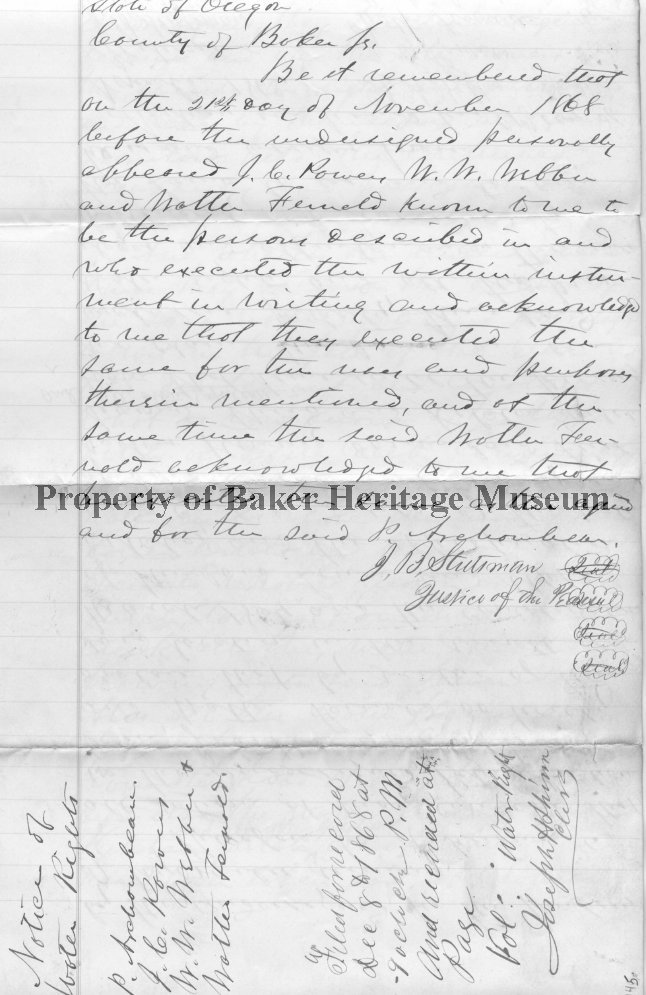 State of Oregon
County of Baker ss.
Be it remembered that
on the 21st Day of November 1868
before the undersigned personally
appeared J. C. Powers W. W. Webber
and Walter Fernald known to me to
be the persons described in and
who executed the within instru-
ment in writing and acknowledged
to me that they executed the
same for the uses and purposes
therein mentioned, and at the
same time the said Walter Fer-
nald acknowledged to me that
he executed the same as the agent
Property of Baker Heritage Museum
and for the said P. Archambeau.
J. B. Stutsman Seal
Justice of the Peace Seal
Seal
Seal
Notice of
Water Rights
P. Archambeau.
J. C. Powers
W. W. Webber &
Walter Fernald.
Filed for record
Dec 8th 1868 at
O'clock P.M
And recorded at
Page
Vol. " Water Right
Joseph H Shinn
Clerk